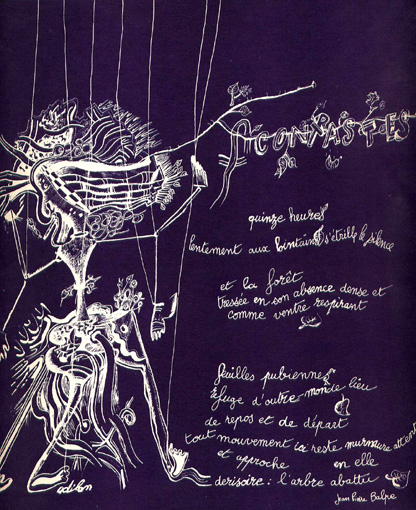 CONTRASTES
quinze heures
lentement aux lointains s'étrille le silence
et la forêt
tressée en son absence dense et
comme ventre respirant
feuilles pubiennes
refuge d'outre-monde lieu
de repos et de départ
tout mouvement ici reste murmure attentif
et approche en elle
derisoire : l'arbre abattu
Jean Pierre Balpe
odilon